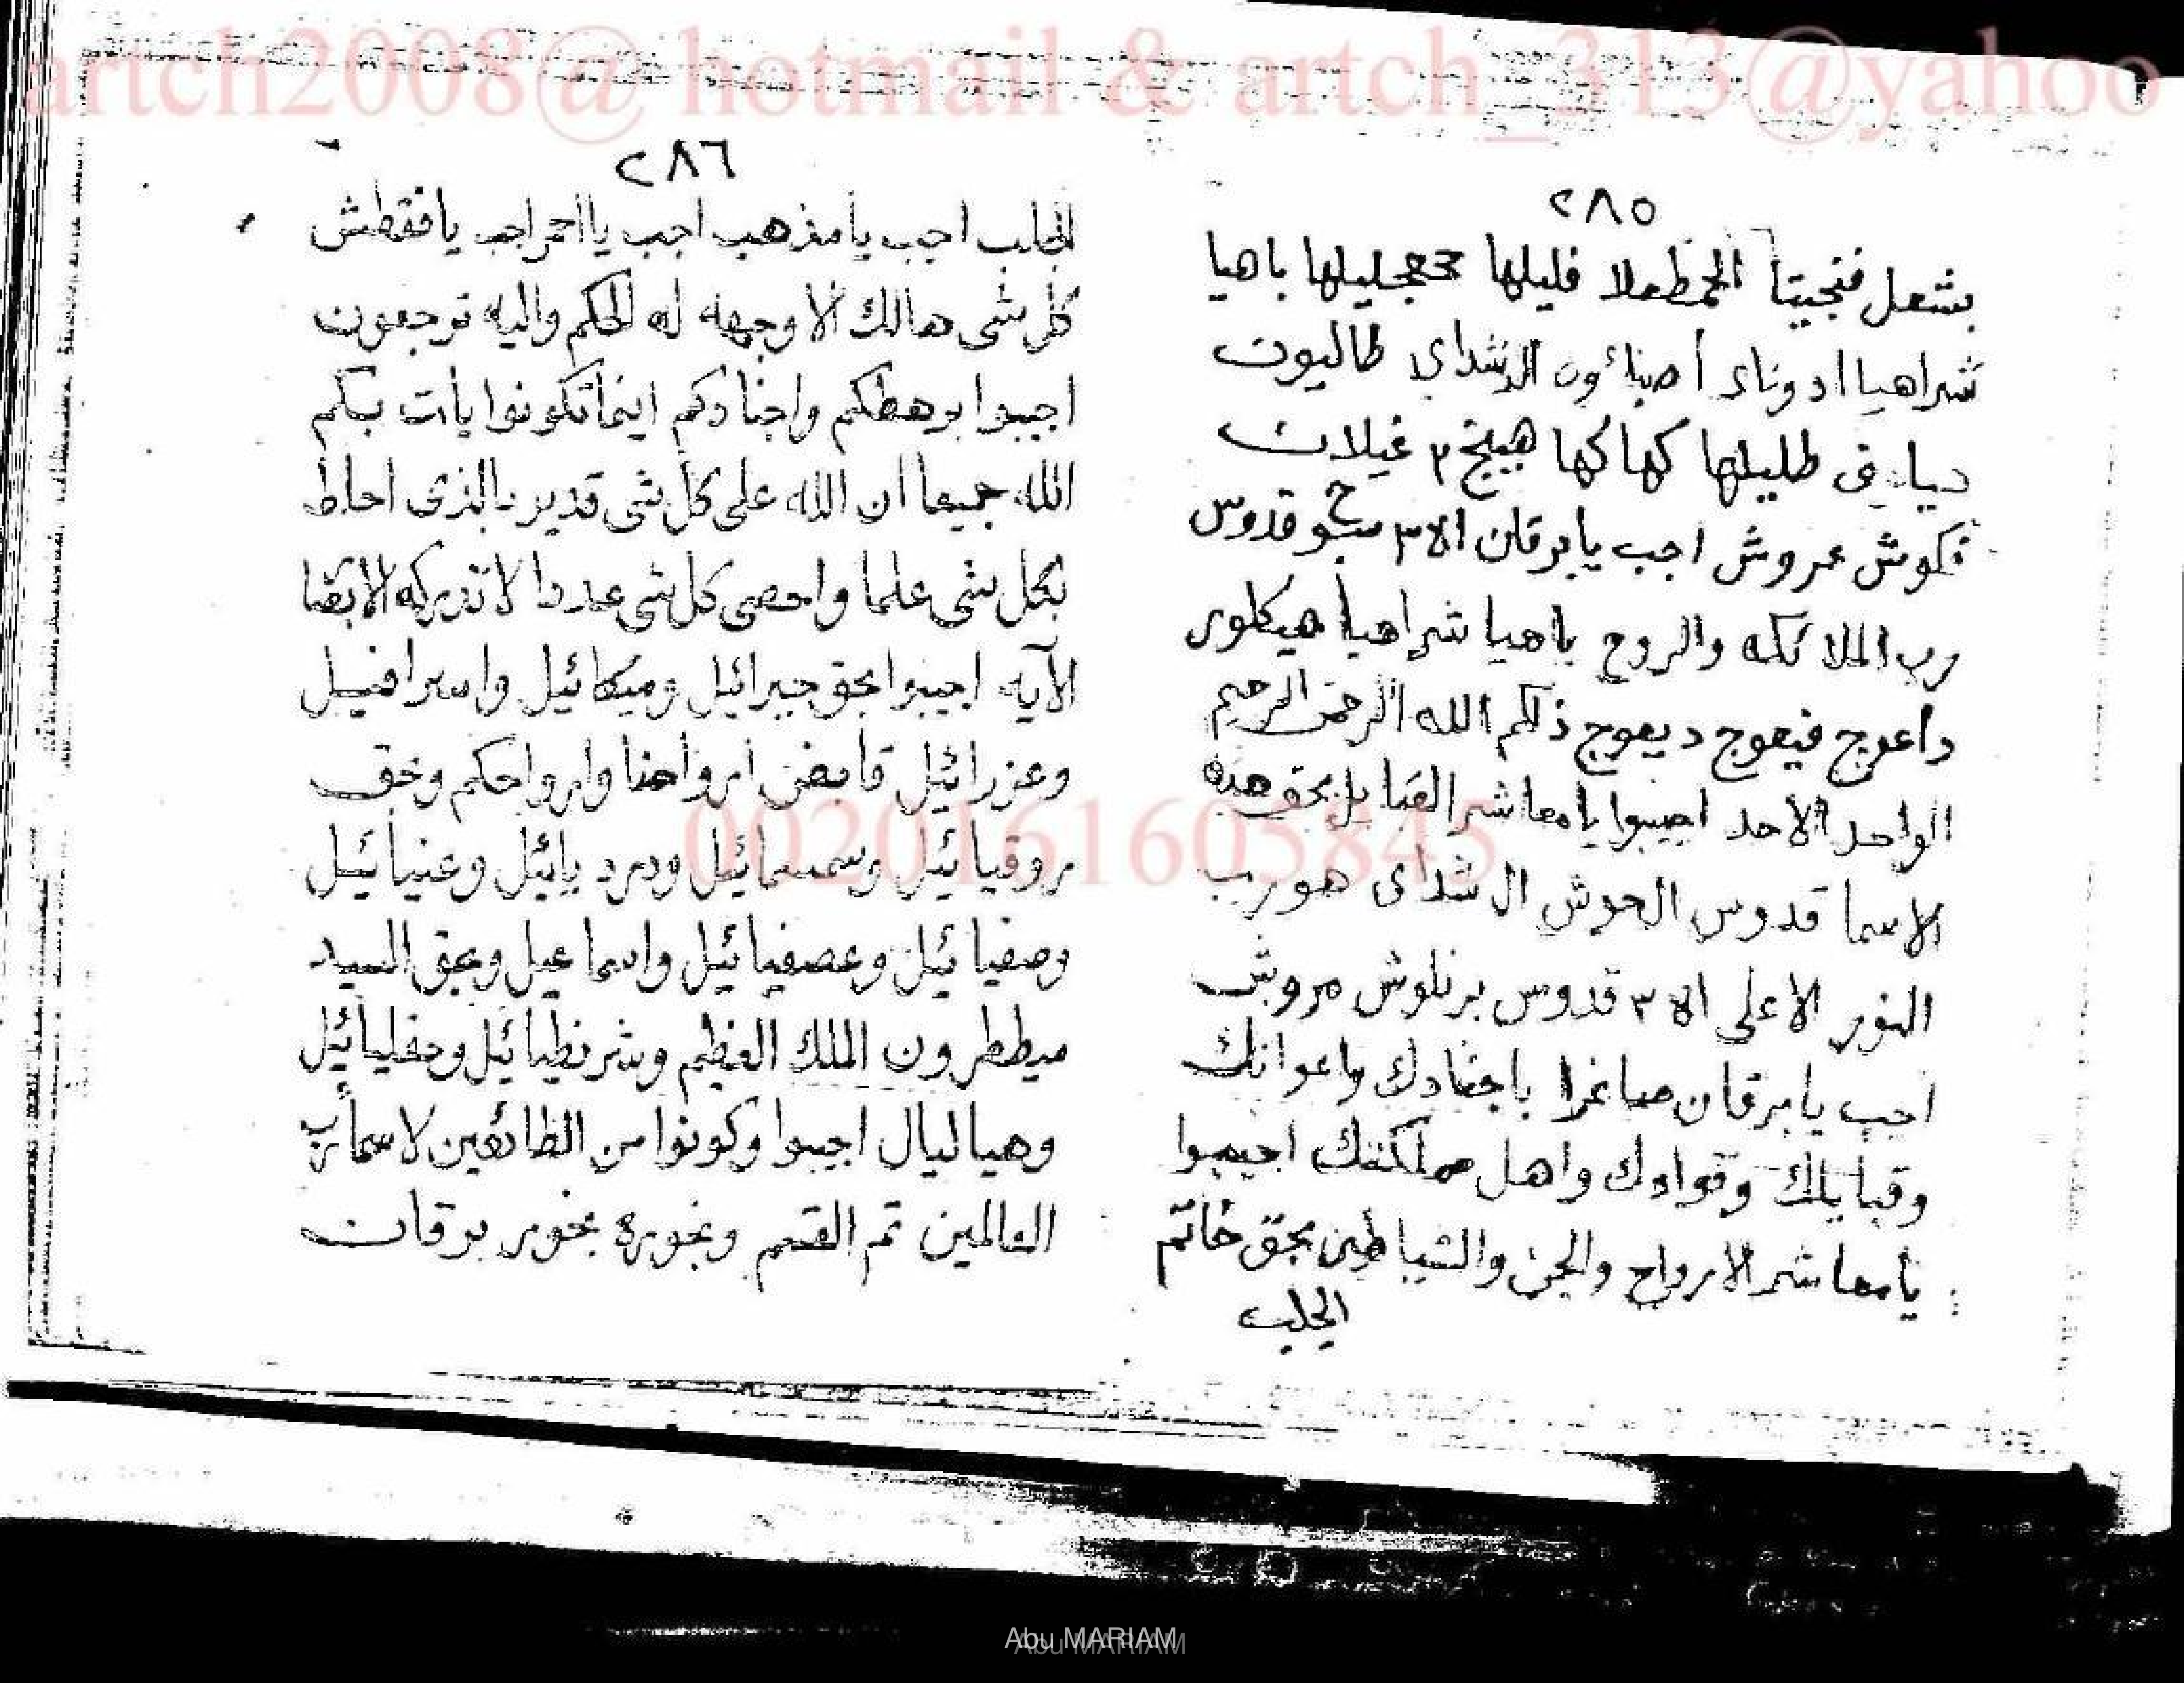 artch2008@ hotmail & artch_313@yahoo
٢٨٥
بشعل فتجيتا فليلها باهيا
شراهيا ادوناى أصباؤت الشداي طاليوت
ديا طليلها كها كها هييج ٣ غيلات
عروش اجب يا برقان الاه ٣ سبوح قدوس
رب الملائكه والروح باهيا شراهيا هيكلور
داعوج فيعوج ديعوج ذلكم الله الرحمن الرحيم
الواحد الاحد اجيبوا يا معاشر القبايل بحق هذه
الاسما قدوس الحوش ال شداى هو رب
النور الاعلى الاه ٣ قدوس برنلوش مروش
اجب يا برقان صاغرا باجنادك واعوانك
وقبايلك وقوادك واهل مملكتك اجيبوا
يا معاشر الارواح والجن والشياطين بحق خاتم
الجلب
٢٨٦
الجلب اجب يا مذهب اجب يا احمر اجب يا فقطش
كل شى هالك الا وجهه له الحكم واليه ترجعون
اجيبوا برهطكم واجنادكم اينما تكونوا يأت بكم
الله جميعا ان الله على كل شى قدير بالذى احاط
بكل شى علما واحصى كل شى عددا لا تدركه الابصا
الآيه اجيبوا بحق جبرائيل وميكائيل واسرافيل
وعزرائيل قابض ارواحنا وارواحكم وبحق
روقيائيل وسمسمائيل ودرديائيل وعنيائيل
وصفيائيل وعصفيائيل واسماعيل وبحق السيد
ميططرون الملك العظيم وشرنطيائيل وحقليائيل
وهياليال اجيبوا وكونوا من الطائعين لاسما رب
العالمين تم القسم وبخوره بخور برقان
0020161605845
Abu MARIAM
Abu MARIAM